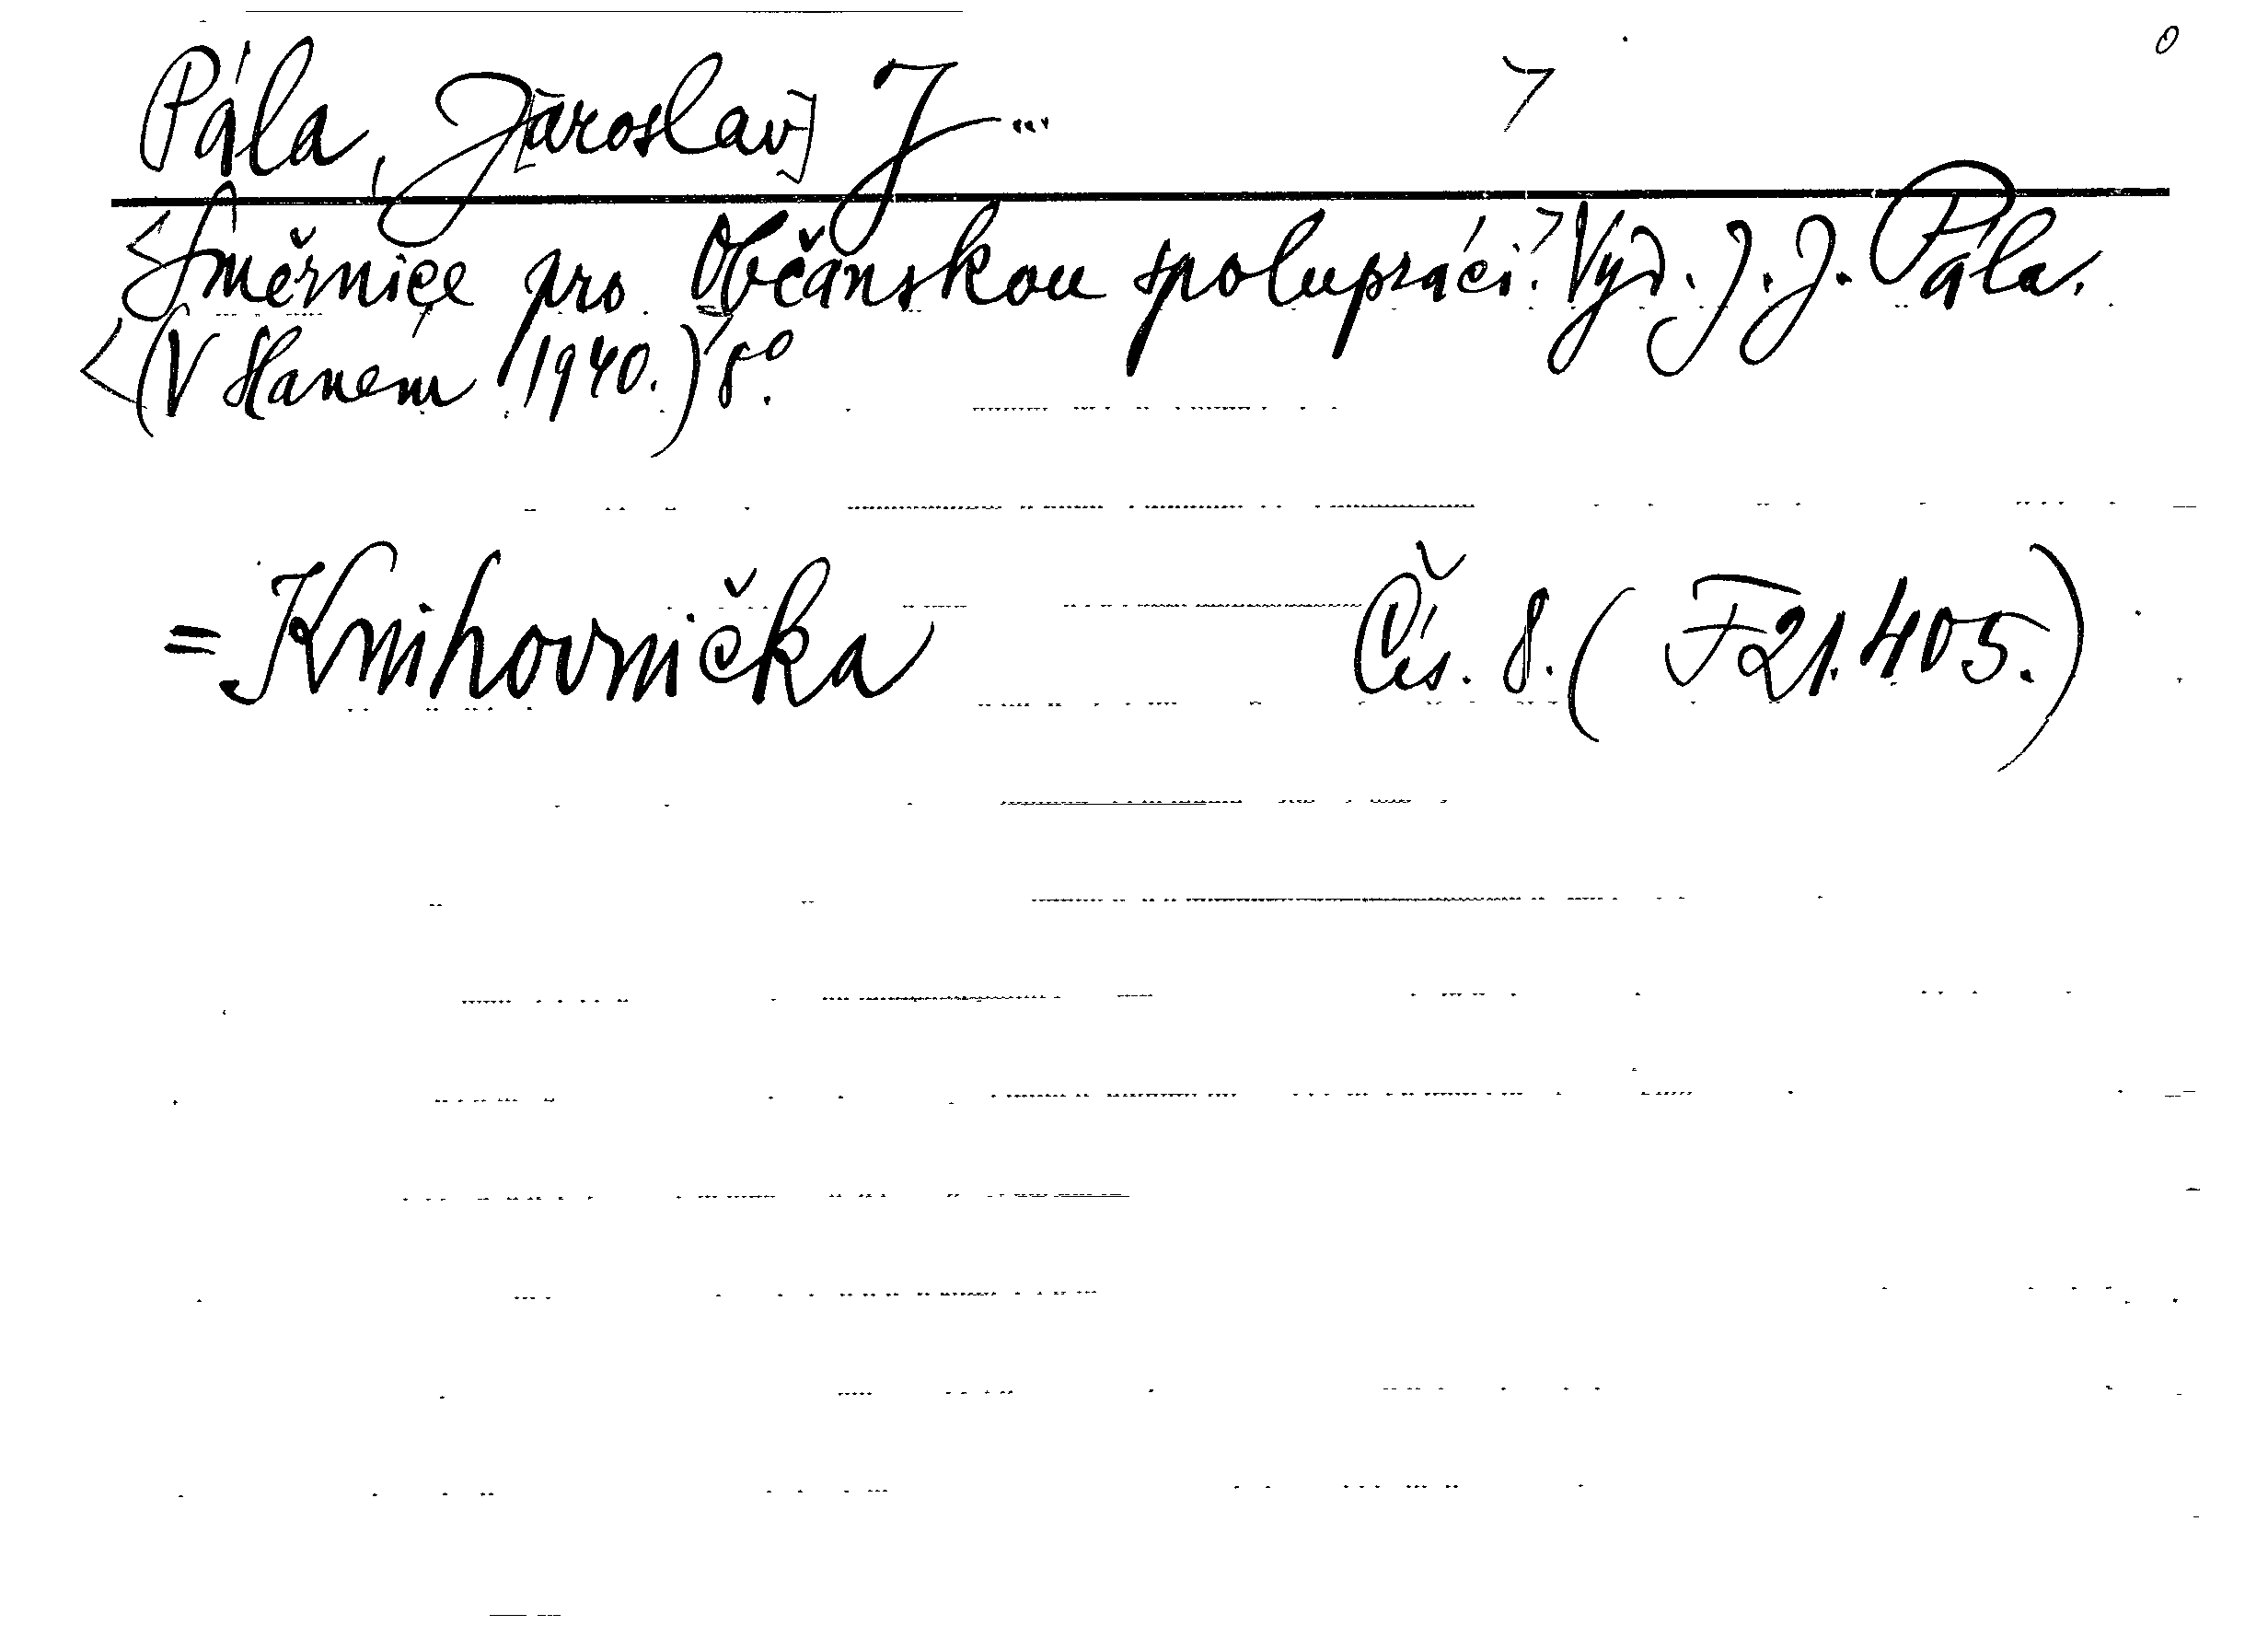 Pála, J[aroslav] J...
Směrnice pro Občanskou spolupráci. Vyd. J. J. Pála.
(V Slaném 1940.) 8°.
= Knihovnička Čís. 8. (F 21.405.)